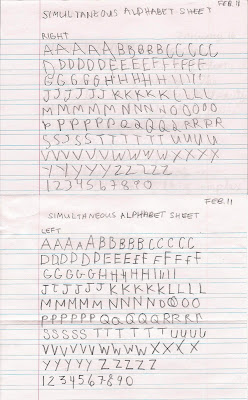 FEB. 11
SIMULTANEOUS ALPHABET SHEET
RIGHT
AAAAABBBBBCCCCC
DDDDDDEEEEEFFFFFF
GGGGGHHHHHIIIII
JJJJJJKKKKKLLLL
MMMMMNNNNOOOOO
PPPPPPQQQQQRRRR
SSSSSTTTTTTUUUU
VVVVVWWWWWXXXX
YYYYYYZZZZZ
1234567890
FEB. 11
SIMULTANEOUS ALPHABET SHEET
LEFT
AAAAABBBBBCCCCC
DDDDDDEEEEEFFFFF
GGGGGHHHHIIIII
JJJJJJKKKKKLLLLL
MMMMMNNNNNOOOO
PPPPPPQQQQQRRRR
SSSSSTTTTTTUUUU
VVVVVWWWWWXXXX
YYYYYZZZZZ
1234567890